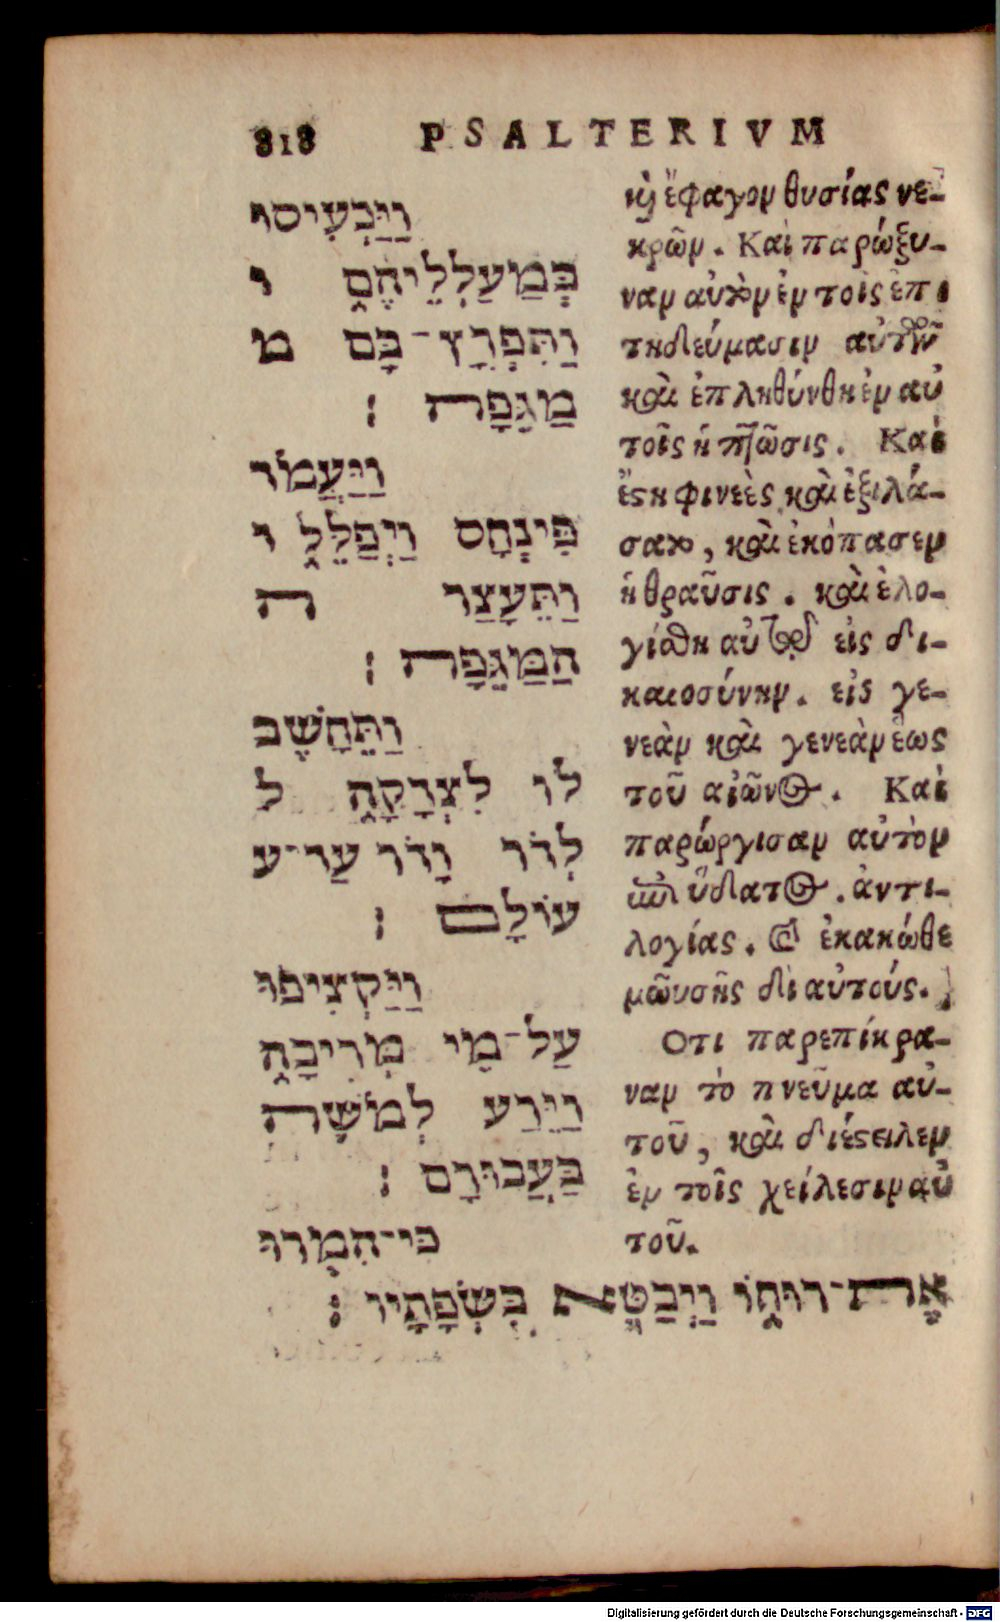 818 PSALTERIVM
וַיַּכְעִיסוּ
בְּמַעַלְלֵיהֶם ו
וַתִּפְרָץ־בָּם מ
מַגֵּפָה׃
וַיַּעֲמֹד
פִּינְחָס וַיְפַלֵּל ו
וַתֵּעָצַר ה
הַמַּגֵּפָה׃
וַתֵּחָשֶׁב
לוֹ לִצְדָקָה ל
לְדֹר וָדֹר עַד־ע
עוֹלָם׃
וַיַּקְצִיפוּ
עַל־מֵי מְרִיבָה
וַיֵּרַע לְמֹשֶׁה
בַּעֲבוּרָם׃
כִּי־הִמְרוּ
אֶת־רוּחוֹ וַיְבַטֵּא בִּשְׂפָתָיו׃
καὶ ἔφαγον θυσίας νε-
κρῶν. Καὶ παρώξυ-
ναν αὐτὸν ἐν τοῖς ἐπι
τηδεύμασιν αὐτῶν
καὶ ἐπληθύνθη ἐν αὐ
τοῖς ἡ πτῶσις. Καὶ
ἔστη φινεὲς καὶ ἐξιλά-
σατο, καὶ ἐκόπασεν
ἡ θραῦσις. καὶ ἐλο-
γίσθη αὐτῷ εἰς δι-
καιοσύνην. εἰς γε-
νεὰν καὶ γενεὰν ἕως
τοῦ αἰῶνος. Καὶ
παρώργισαν αὐτὸν
ἐπὶ ὕδατος. ἀντι-
λογίας. καὶ ἐκακώθε
μωυσῆς δι αὐτούς.
Οτι παρεπίκρα-
ναν τὸ πνεῦμα αὐ-
τοῦ, καὶ διέστειλεν
ἐν τοῖς χείλεσιν αὐ
τοῦ.
Digitalisierung gefördert durch die Deutsche Forschungsgemeinschaft - DFG